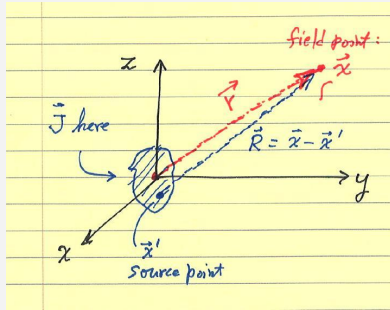 field point:
z
x⃗
r⃗
J⃗ here
R⃗ = x⃗ - x⃗'
y
x
x⃗'
source point